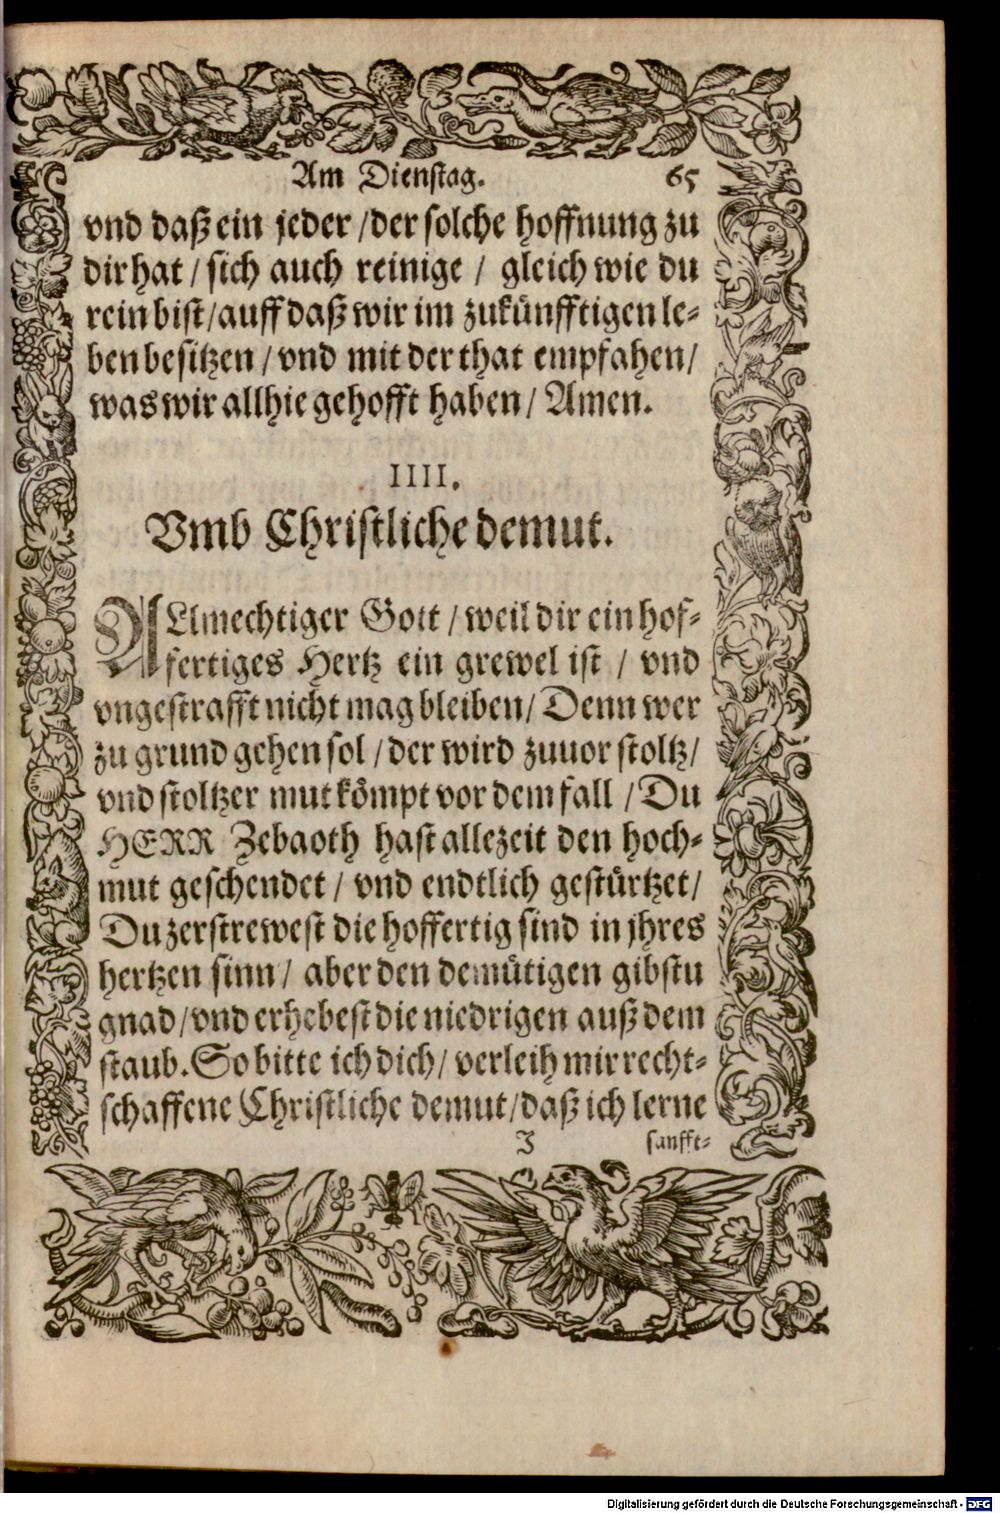 Am Dienstag. 65
vnd daß ein jeder / der solche hoffnung zu
dir hat / sich auch reinige / gleich wie du
rein bist / auff daß wir im zukünfftigen le-
ben besitzen / vnd mit der that empfahen /
was wir allhie gehofft haben / Amen.
IIII.
Vmb Christliche demut.
ALlmechtiger Gott / weil dir ein hof-
fertiges Hertz ein grewel ist / vnd
vngestrafft nicht mag bleiben / Denn wer
zu grund gehen sol / der wird zuuor stoltz /
vnd stoltzer mut kömpt vor dem fall / Du
HERR Zebaoth hast allezeit den hoch-
mut geschendet / vnd endtlich gestürtzet /
Du zerstrewest die hoffertig sind in jhres
hertzen sinn / aber den demütigen gibstu
gnad / vnd erhebest die niedrigen auß dem
staub. So bitte ich dich / verleih mir recht-
schaffene Christliche demut / daß ich lerne
J sanfft-
Digitalisierung gefördert durch die Deutsche Forschungsgemeinschaft - DFG